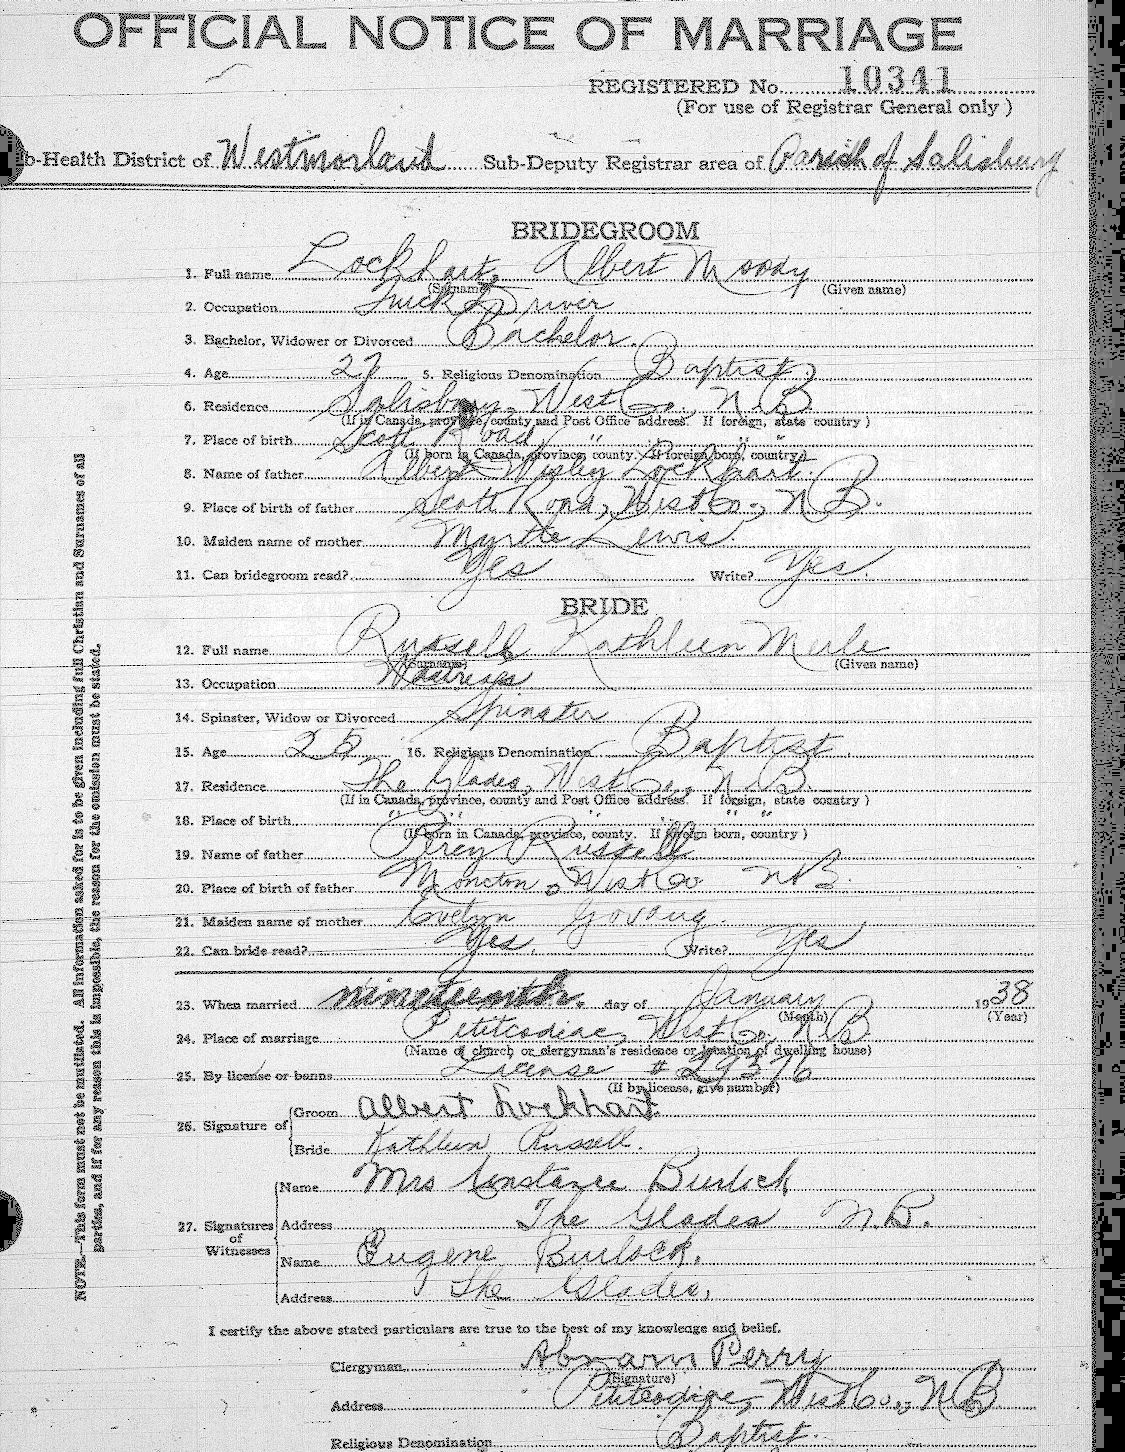 OFFICIAL NOTICE OF MARRIAGE
REGISTERED No. 10341
(For use of Registrar General only )
b-Health District of Westmorland Sub-Deputy Registrar area of Parish of Salisbury
BRIDEGROOM
1. Full name Lockhart, Albert Moody
(Surname) (Given name)
2. Occupation Truck Driver
3. Bachelor, Widower or Divorced Bachelor.
4. Age 27 5. Religious Denomination Baptist.
6. Residence Salisbury, West Co., N.B.
(If in Canada, province, county and Post Office address. If foreign, state country )
7. Place of birth Scott Road, " " "
(If born in Canada, province, county. If foreign born, country )
8. Name of father Albert Wesley Lockhart.
9. Place of birth of father Scott Road, West Co., N.B.
10. Maiden name of mother Myrtle Lewis.
11. Can bridegroom read? Yes Write? Yes.
BRIDE
12. Full name Russell Kathleen Merle
(Surname) (Given name)
13. Occupation Waitress
14. Spinster, Widow or Divorced Spinster
15. Age 25 16. Religious Denomination Baptist.
17. Residence The Glades, West Co., N.B.
(If in Canada, province, county and Post Office address. If foreign, state country )
18. Place of birth " " " " "
(If born in Canada, province, county. If foreign born, country )
19. Name of father Percy Russell
20. Place of birth of father Moncton, West Co N.B.
21. Maiden name of mother Evelyn
22. Can bride read? Yes. Write? Yes
23. When married nineteenth. day of January 1938
(Month) (Year)
24. Place of marriage Petitcodiac, West Co, N.B.
(Name of church or clergyman's residence or location of dwelling house)
25. By license or banns License # 29376
(If by license, give number)
26. Signature of
Groom Albert Lockhart.
Bride Kathleen Russell.
27. Signatures of Witnesses
Name Mrs Constance Burlock
Address The Glades N.B.
Name Eugene Burlock.
Address The Glades,
I certify the above stated particulars are true to the best of my knowledge and belief.
Clergyman Perry
(Signature)
Address Petitcodiac, West Co., N.B.
Religious Denomination Baptist.
NOTE.—This form must not be mutilated. All information asked for is to be given including full Christian and Surnames of all
parties, and if for any reason this is impossible, the reason for the omission must be stated.